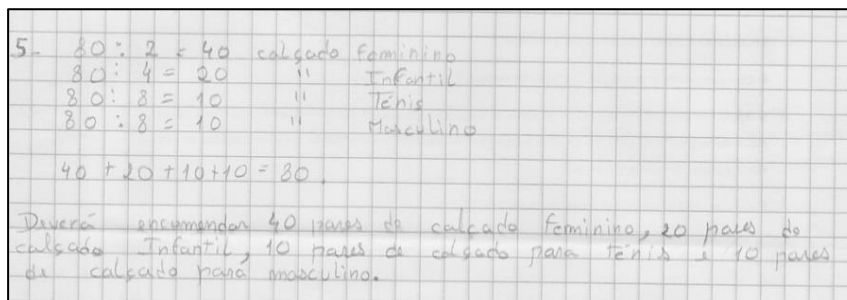 5. 80 : 2 = 40 calçado Feminino
80 : 4 = 20 " Infantil
80 : 8 = 10 " Ténis
80 : 8 = 10 " Masculino
40 + 20 + 10 + 10 = 80.
Deverá encomendar 40 pares de calçado feminino, 20 pares de
calçado Infantil, 10 pares de calçado para ténis e 10 pares
de calçado para masculino.